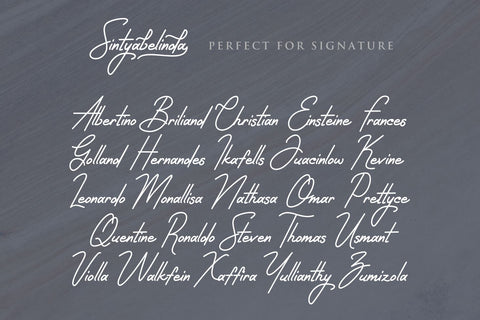 Sintyabelinda PERFECT FOR SIGNATURE
Albertino Briliand Christian Einsteine Frances
Golland Hernandes Ikafells Juacinlow Kevine
Leonardo Monallisa Nathasa Omar Prettyce
Quentine Ronaldo Steven Thomas Usmant
Violla Walkfein Xaffira Yullianthy Zumizola